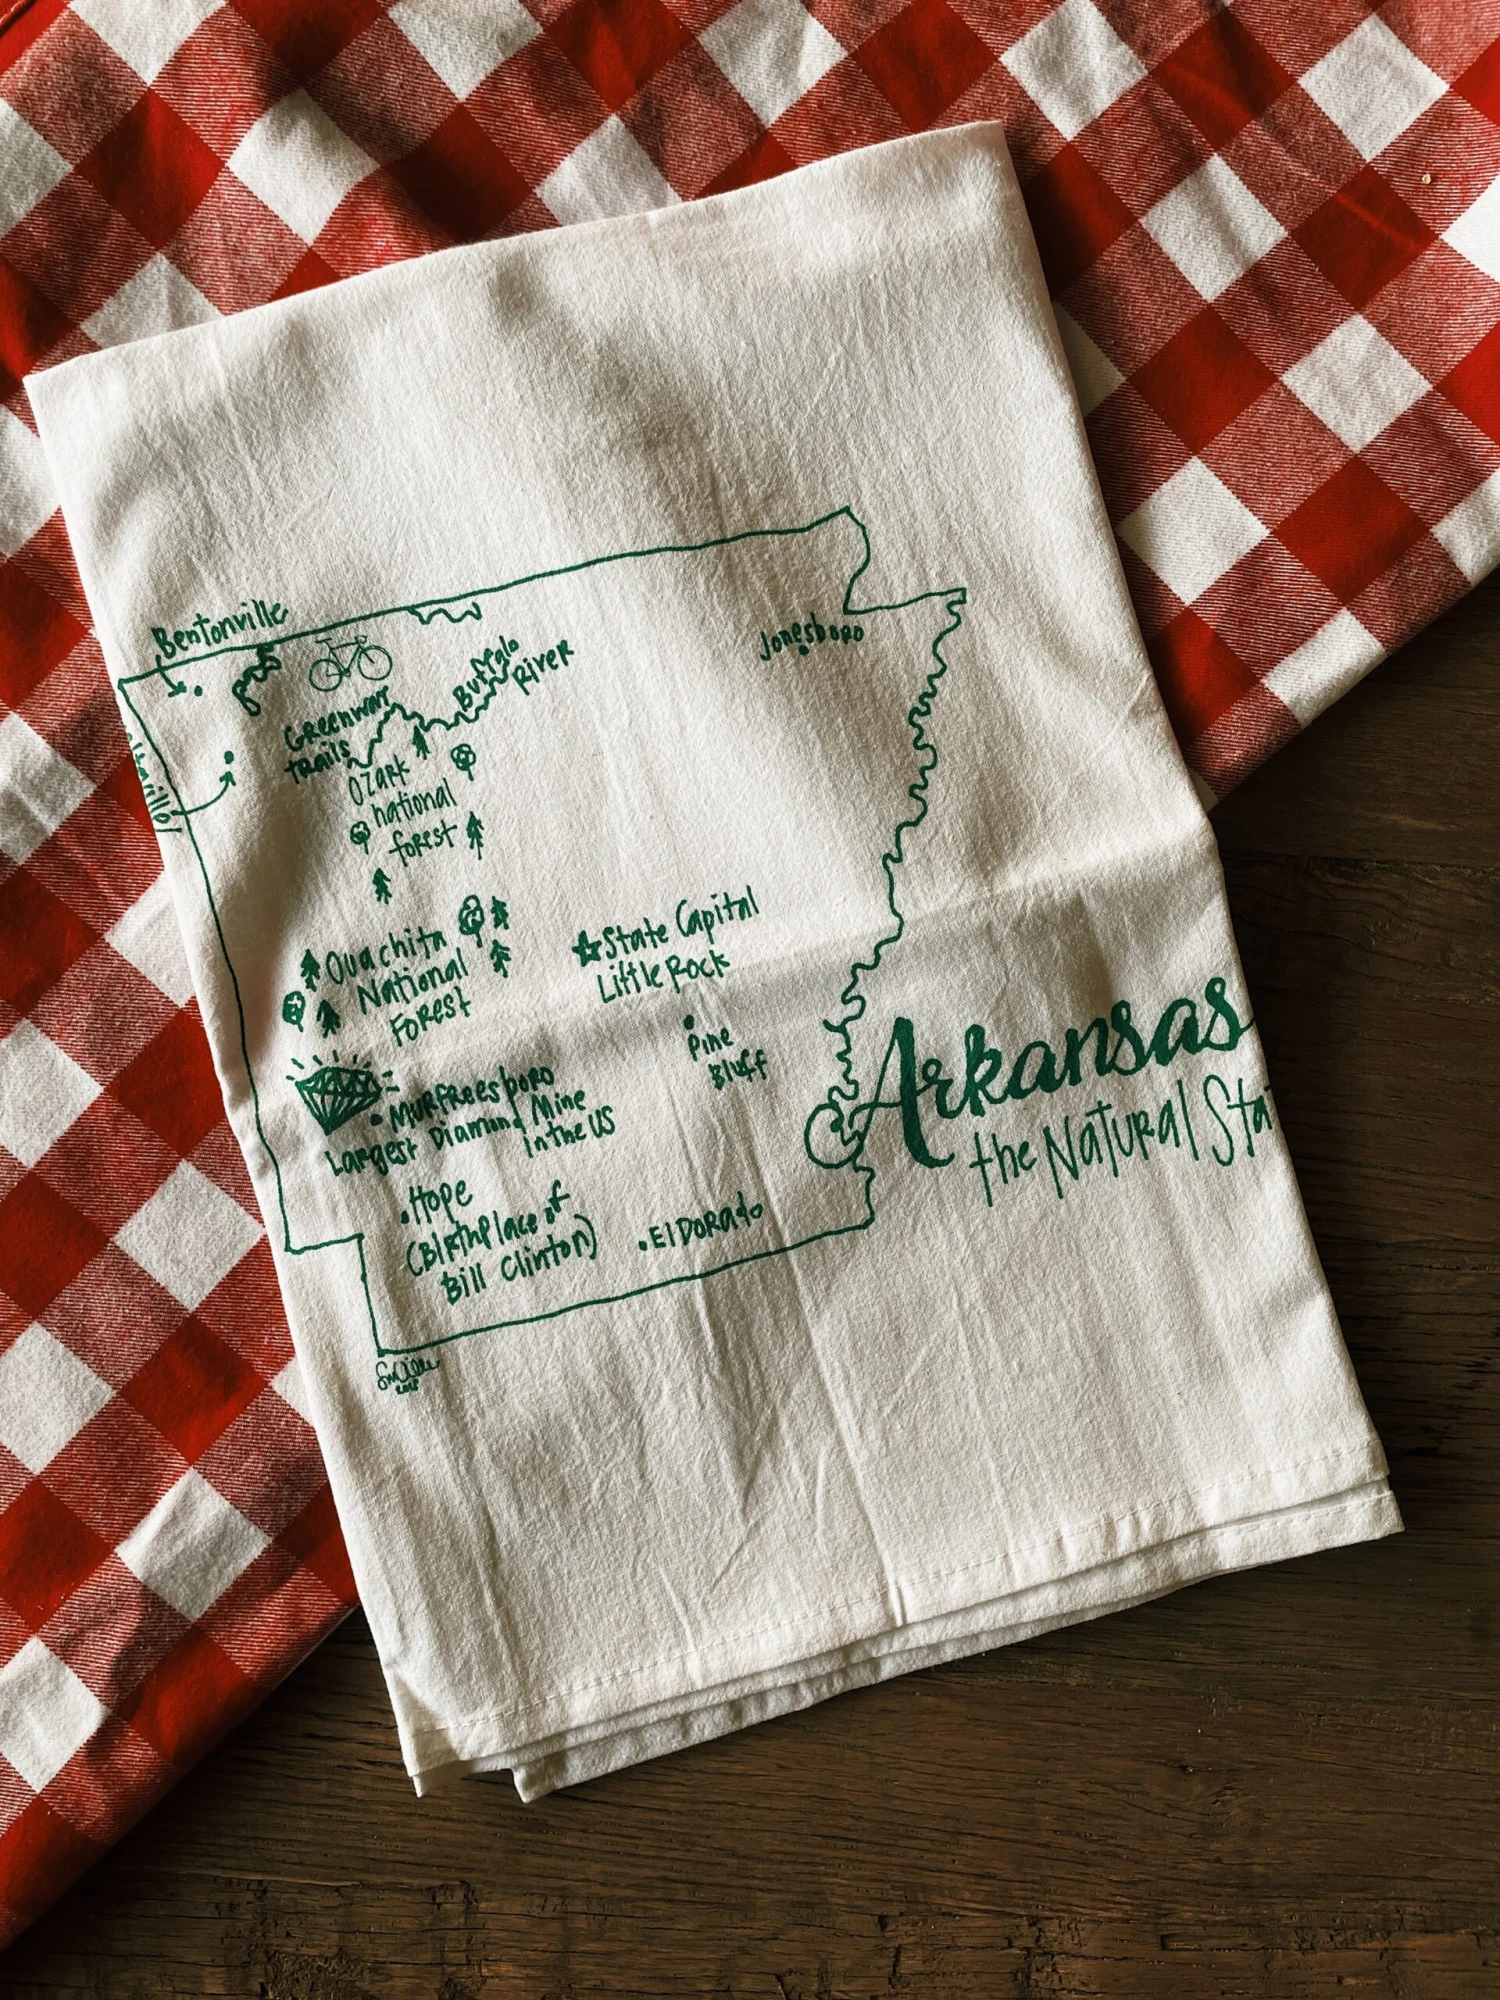 Bentonville
Buffalo
River
Jonesboro
Greenway
trails
Ozark
national
forest
State Capital
Little Rock
Ouachita
National
Forest
Pine
Bluff
Murfreesboro
Largest Diamond Mine
in the US
Arkansas
the Natural Sta
Hope
(Birthplace of
Bill Clinton)
El Dorado